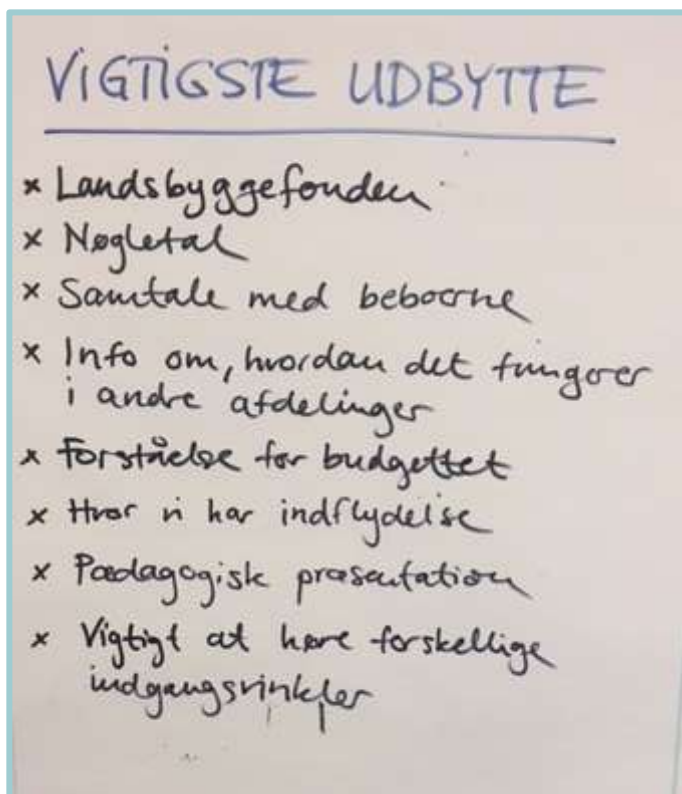 VIGTIGSTE UDBYTTE
x Landsbyggefonden
x Nøgletal
x Samtale med beboerne
x Info om, hvordan det fungerer
i andre afdelinger
x Forståelse for budgettet
x Hvor vi har indflydelse
x Pædagogisk præsentation
x Vigtigt at høre forskellige
indgangsvinkler